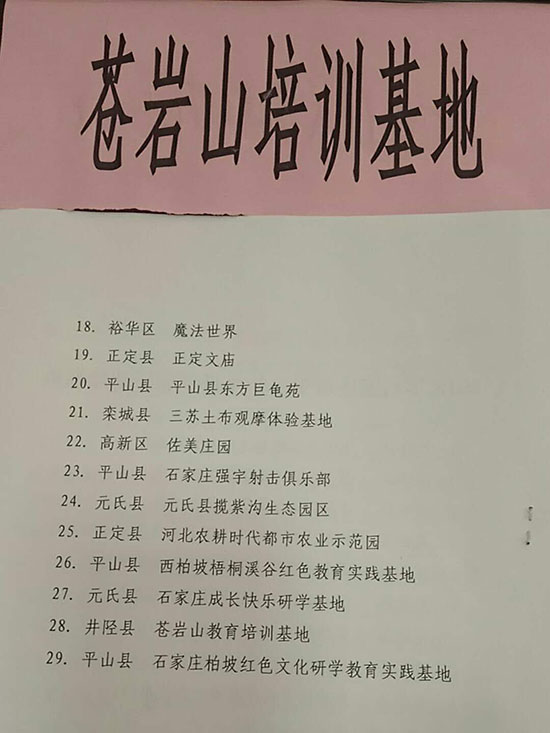 苍岩山培训基地
18. 裕华区 魔法世界
19. 正定县 正定文庙
20. 平山县 平山县东方巨龟苑
21. 栾城县 三苏土布观摩体验基地
22. 高新区 佐美庄园
23. 平山县 石家庄强宇射击俱乐部
24. 元氏县 元氏县揽紫沟生态园区
25. 正定县 河北农耕时代都市农业示范园
26. 平山县 西柏坡梧桐溪谷红色教育实践基地
27. 元氏县 石家庄成长快乐研学基地
28. 井陉县 苍岩山教育培训基地
29. 平山县 石家庄柏坡红色文化研学教育实践基地